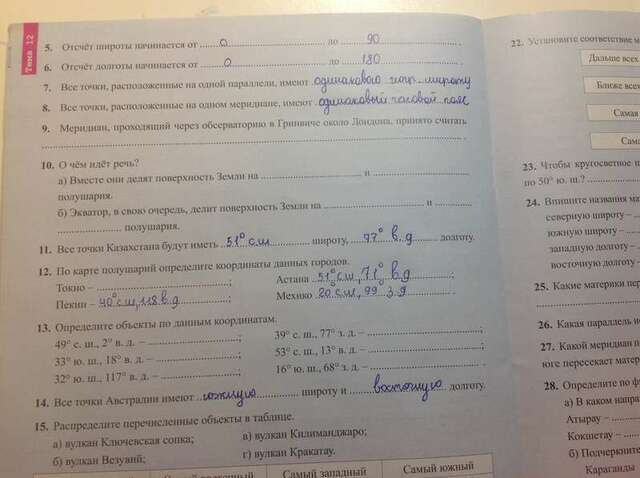 Тема 12
5. Отсчёт широты начинается от 0 до 90
6. Отсчёт долготы начинается от 0 до 180
7. Все точки, расположенные на одной параллели, имеют одинаковую геогр. широту
8. Все точки, расположенные на одном меридиане, имеют одинаковый часовой пояс
9. Меридиан, проходящий через обсерваторию в Гринвиче около Лондона, принято считать
10. О чём идёт речь?
а) Вместе они делят поверхность Земли на и
полушария.
б) Экватор, в свою очередь, делит поверхность Земли на и
полушария.
11. Все точки Казахстана будут иметь 51° с.ш широту, 77° в.д долготу.
12. По карте полушарий определите координаты данных городов.
Токио – ; Астана 51° сш, 71° в.д
Пекин – 40° сш, 118 в.д ; Мехико 20° сш, 99° з.д
13. Определите объекты по данным координатам.
49° с. ш., 2° в. д. – ; 39° с. ш., 77° з. д. – ;
33° ю. ш., 18° в. д. – ; 53° с. ш., 13° в. д. – ;
32° ю. ш., 117° в. д. – ; 16° ю. ш., 68° з. д. – .
14. Все точки Австралии имеют южную широту и восточную долготу.
15. Распределите перечисленные объекты в таблице.
а) вулкан Ключевская сопка; в) вулкан Килиманджаро;
б) вулкан Везувий; г) вулкан Кракатау.
Самый западный Самый южный
22. Установите соответствие
Дальше всех
Ближе всех
Самая
23. Чтобы кругосветное
по 50° ю. ш.?
24. Впишите названия
северную широту –
южную широту –
западную долготу –
восточную долготу –
25. Какие материки
26. Какая параллель
27. Какой меридиан
юге пересекает
28. Определите по
а) В каком
Атырау –
Кокшетау –
б) Подчеркните
Караганды